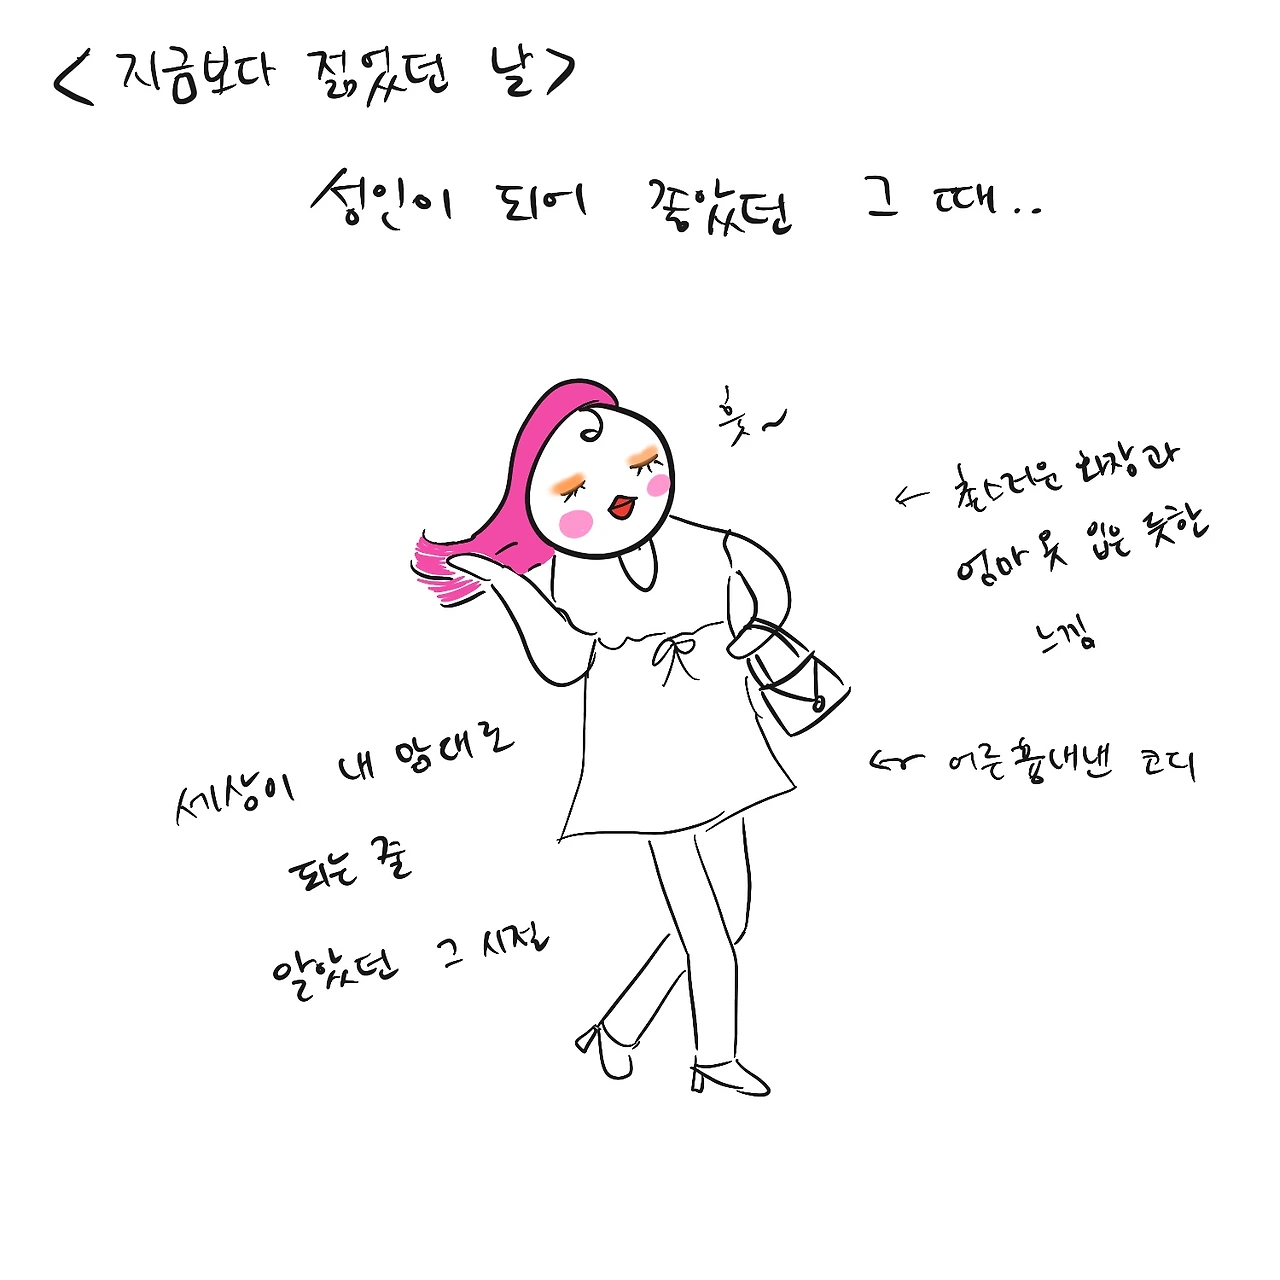 <지금보다 젊었던 날>
성인이 되어 좋았던 그 때..
흣~
← 촌스러운 화장과
엄마 옷 입은 듯한
느낌
세상이 내 맘대로
되는 줄
알았던 그 시절
← 어른흉내낸 코디